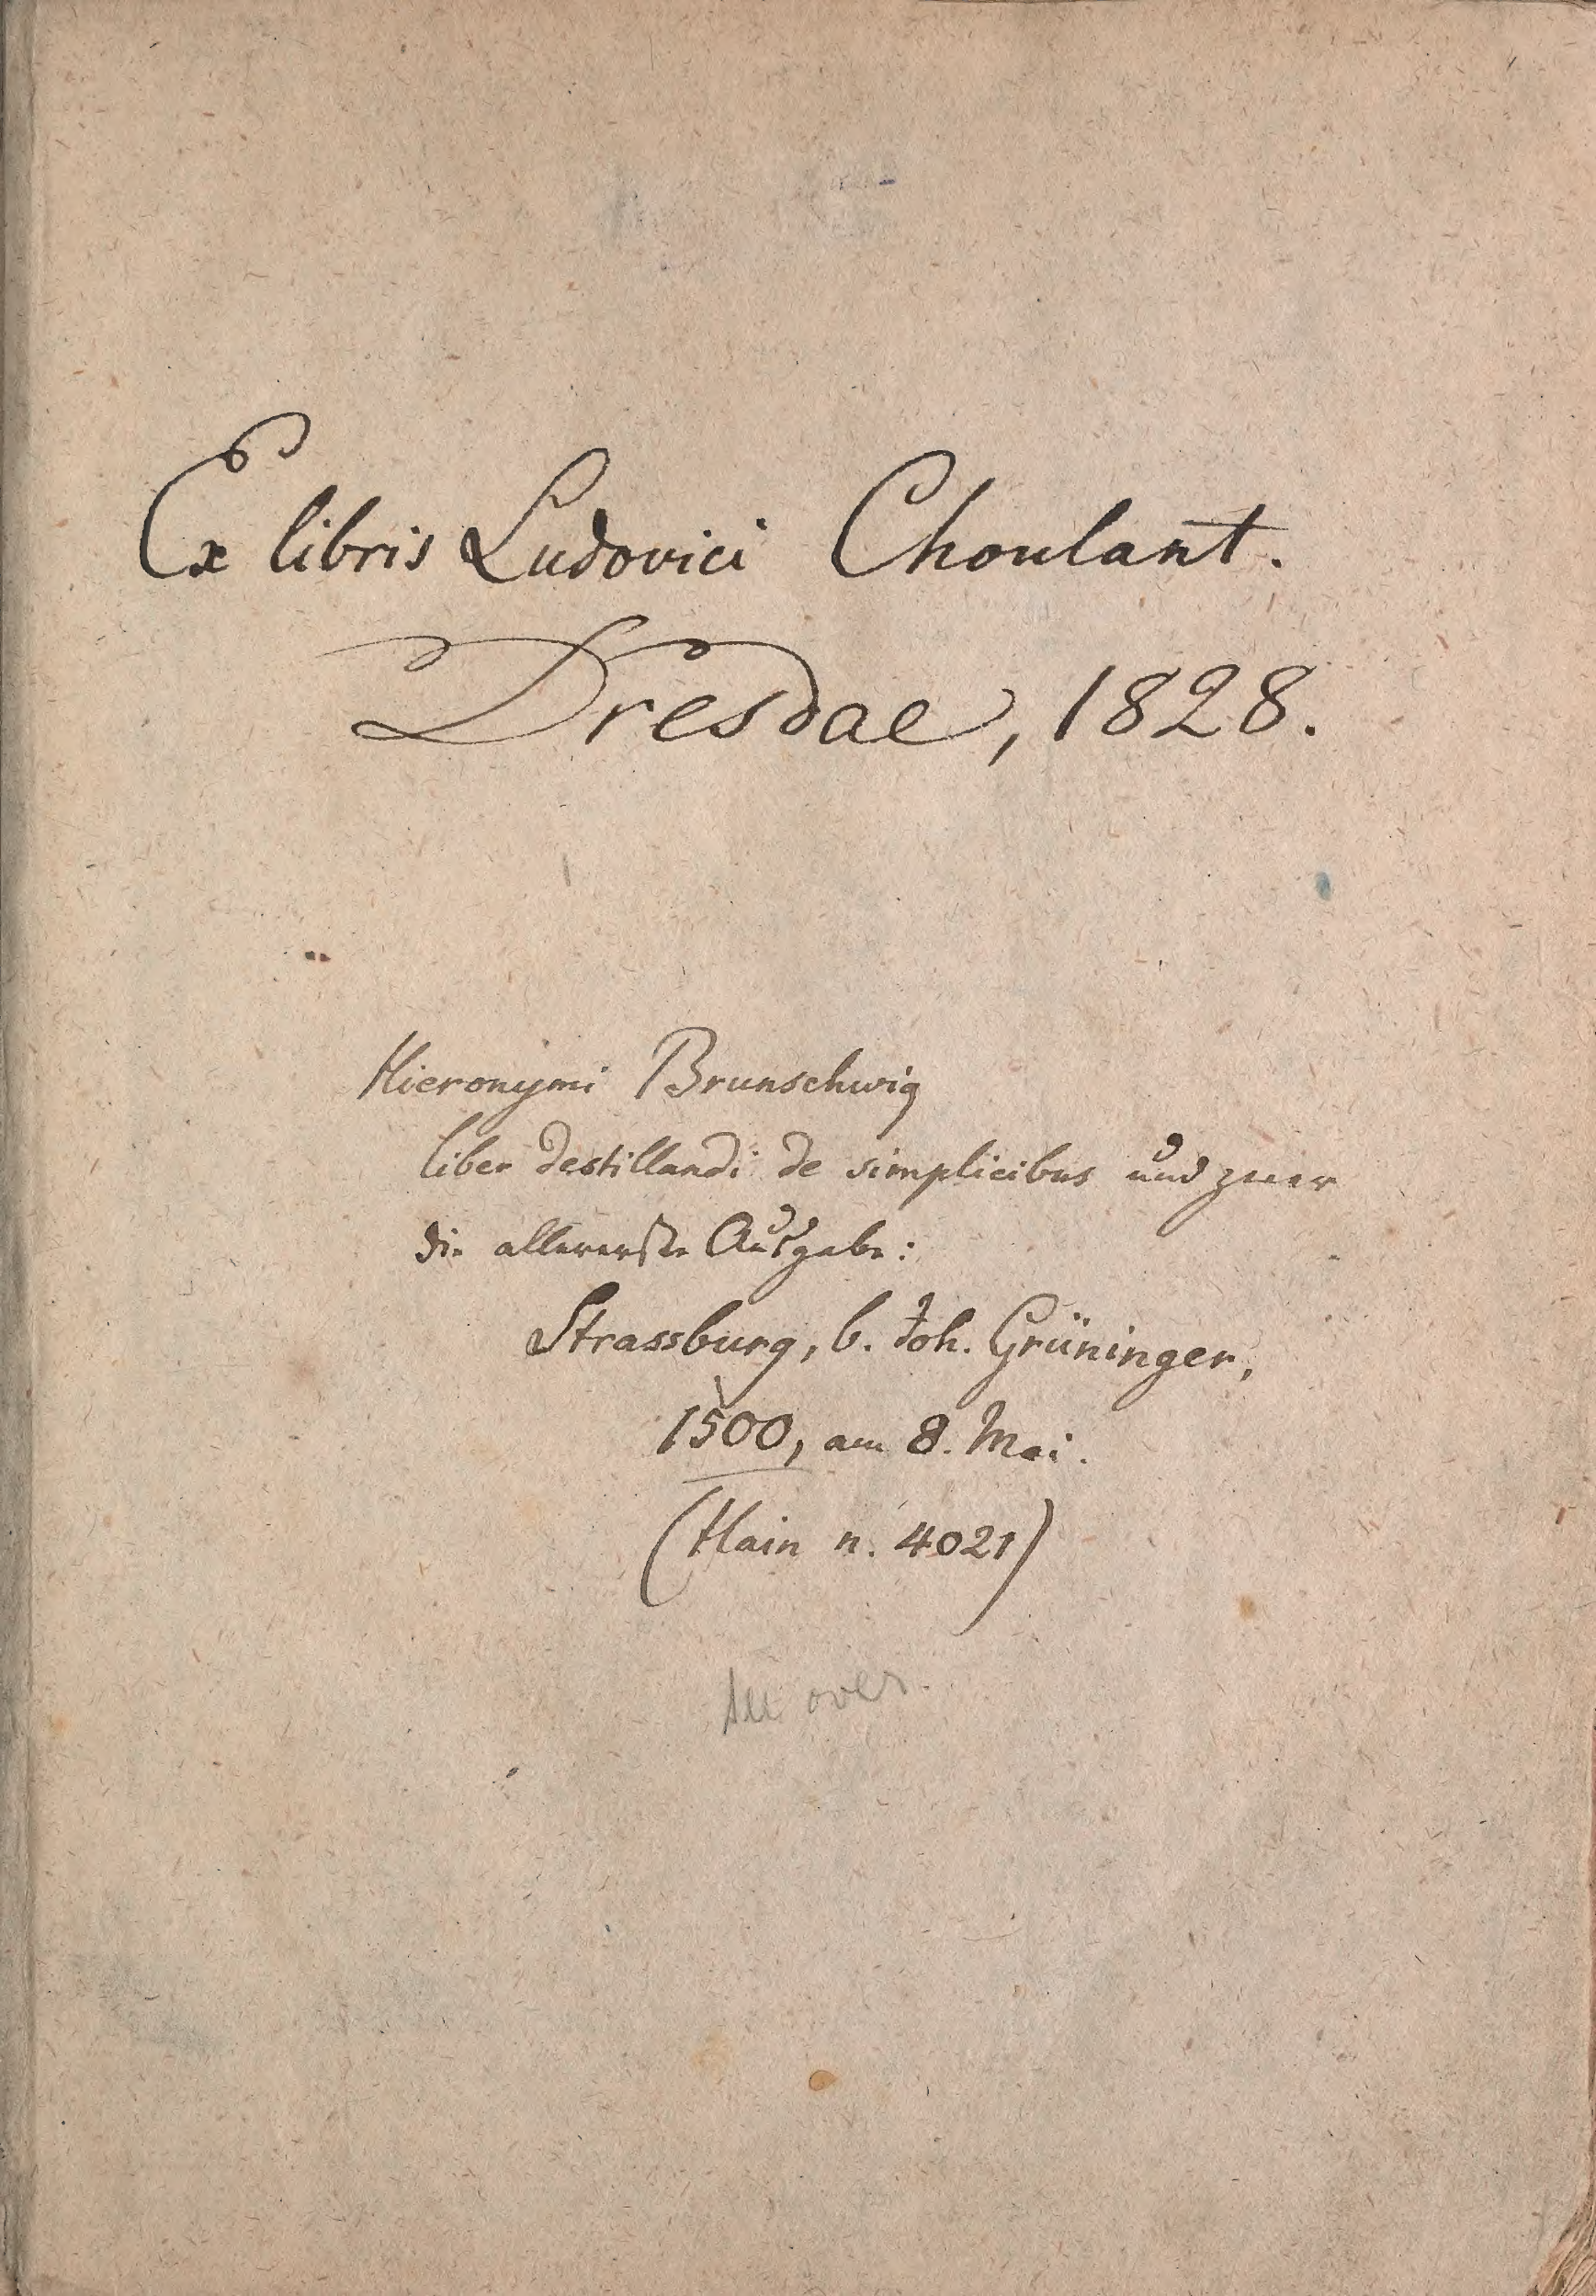 Ex libris Ludovici Choulant.
Dresdae, 1828.
Hieronymi Brunschwig
liber destillandi de simplicibus und zwar
die allererste Ausgabe:
Strassburg, b. Joh. Grüninger,
1500, am 8. Mai.
(Hain n. 4021)
See over.